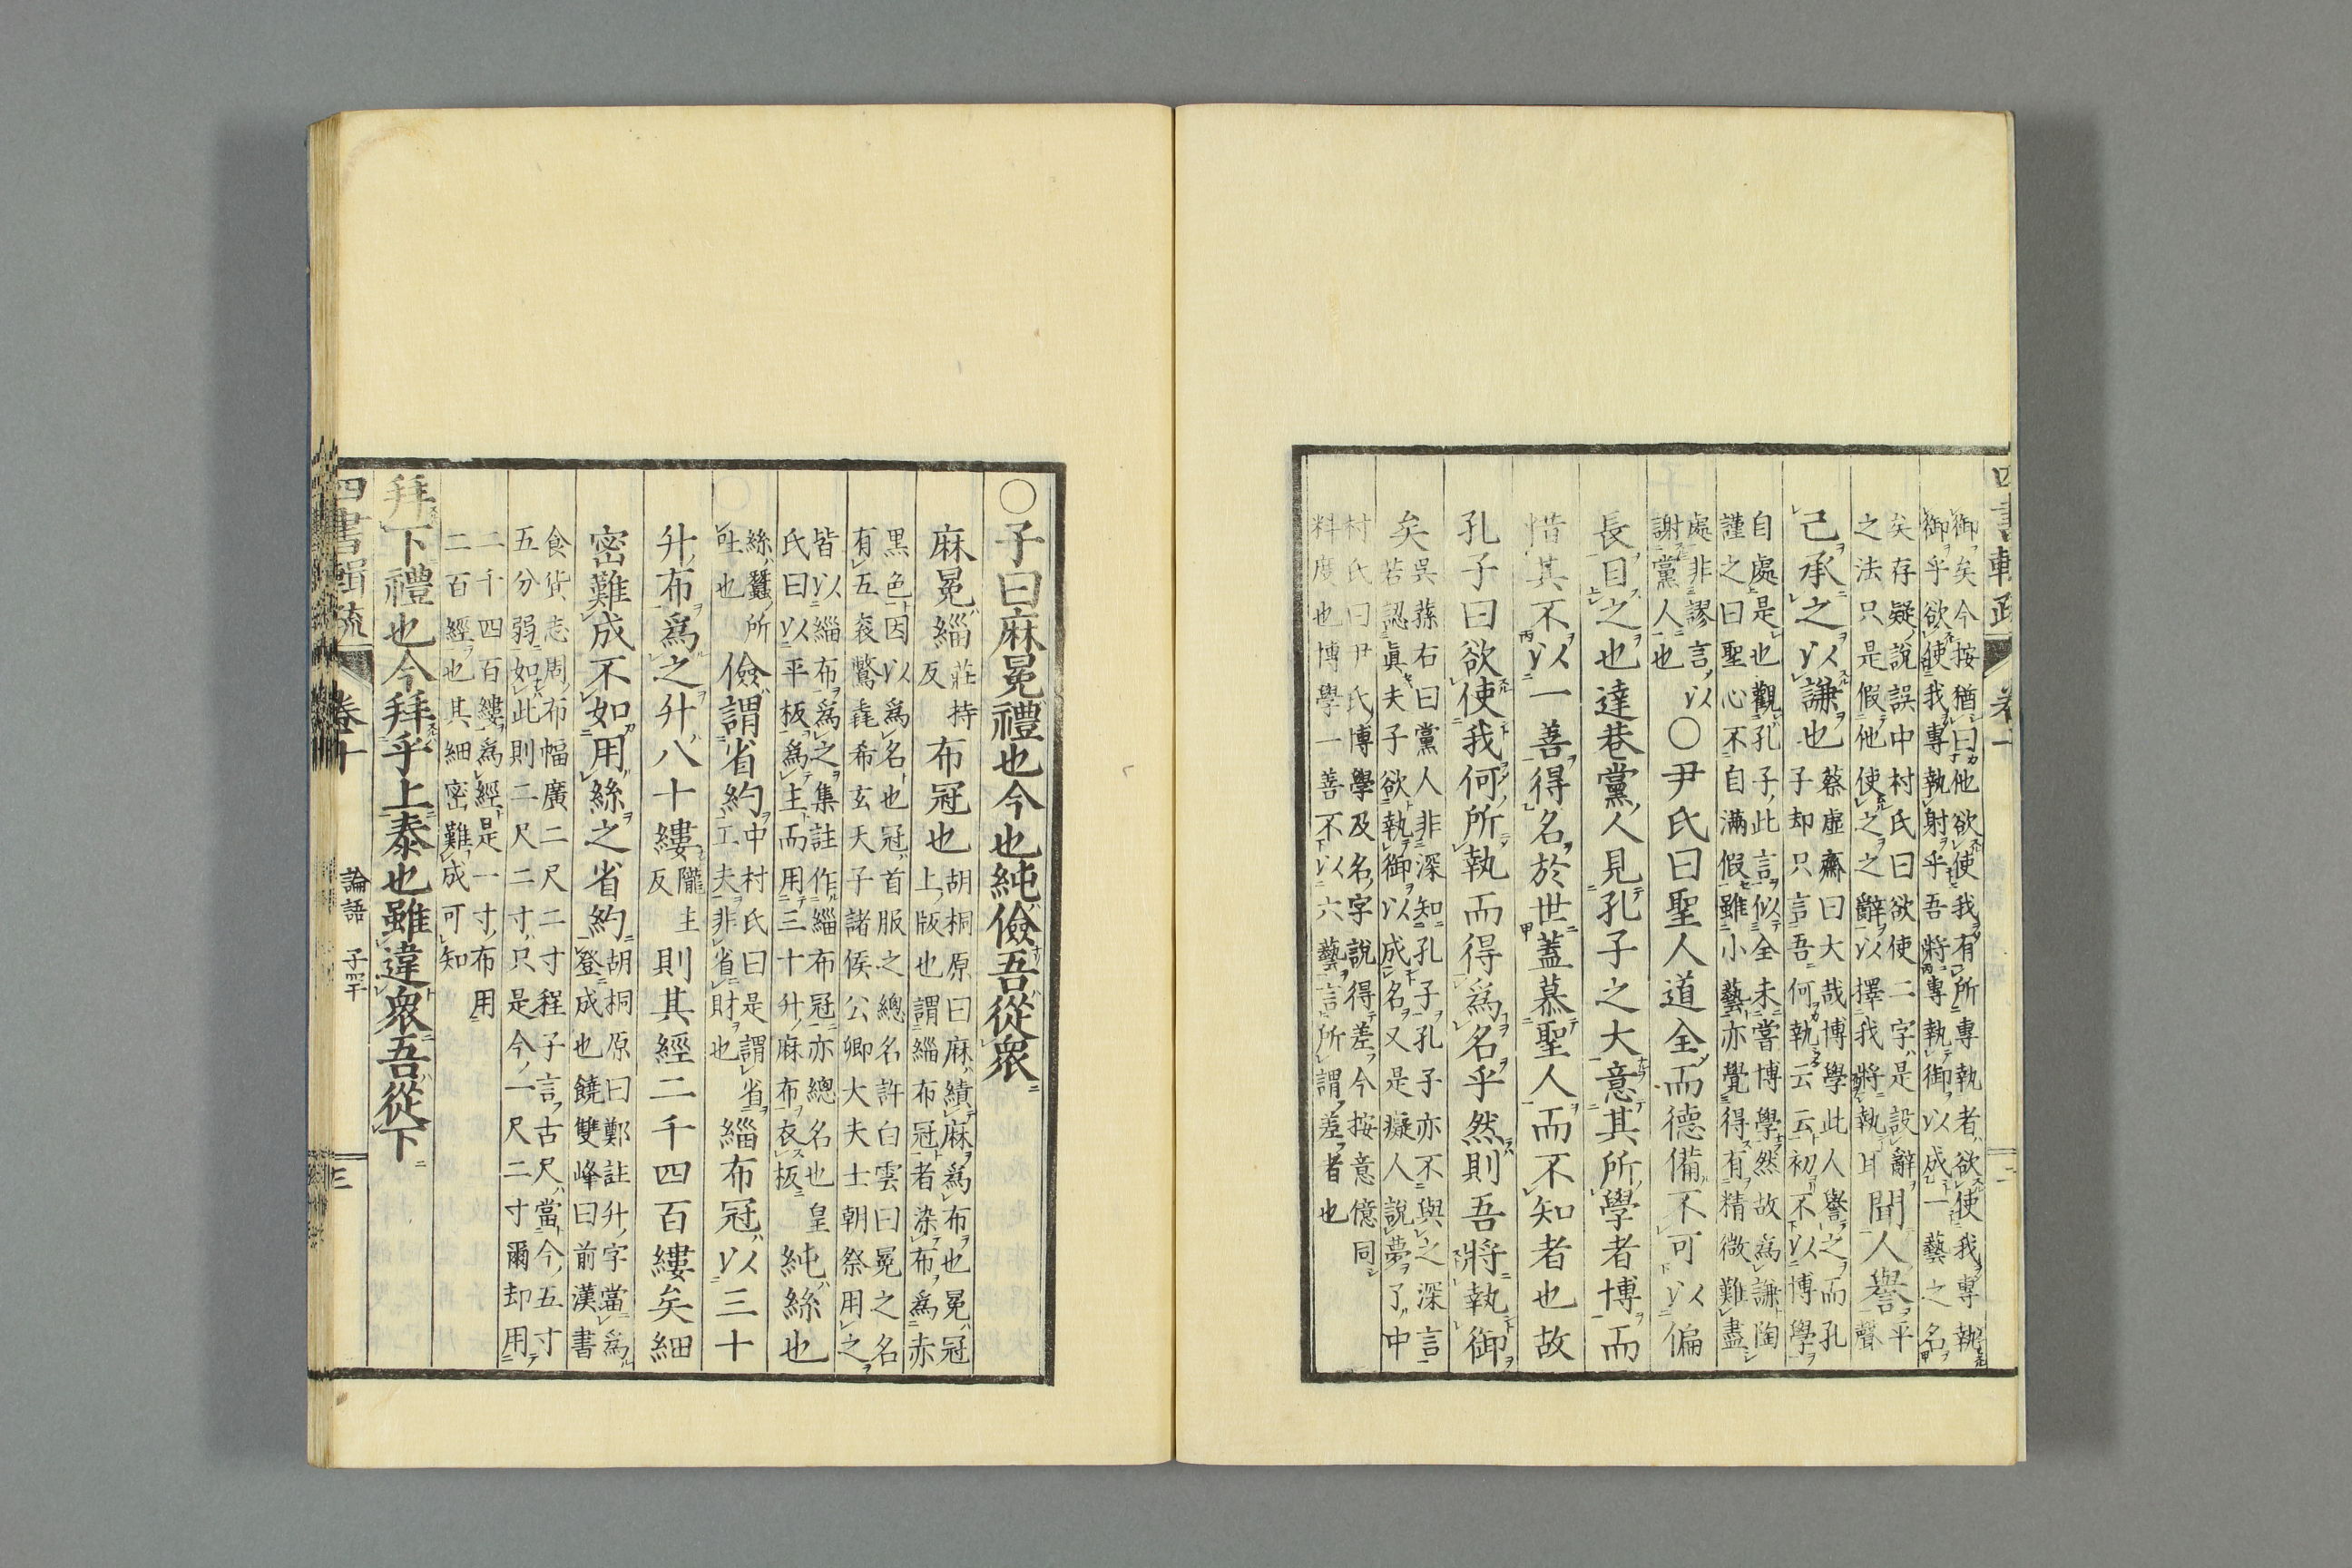 御矣今按猶曰他欲使我有所專執者欲使我專執
御乎欲使我專執射乎吾將專執御以成一藝之名
矣存疑說誤中村氏曰欲使二字是設辭
之法只是假他使之之辭以擇我將執
聞人譽
平
聲
己承之以謙也
蔡虛齋曰大哉博學此人譽之而孔
子却只言吾何執云云初不以博學
自處是也觀孔子此言似全未嘗博學然故為謙陶
謹之曰聖心不自滿假雖小藝亦覺得有精微難盡
處非謬言以
謝黨人也
〇尹氏曰聖人道全而德備不可以偏
長目之也達巷黨人見孔子之大意其所學者博而
惜其不以一善得名於世蓋慕聖人而不知者也故
孔子曰欲使我何所執而得為名乎然則吾將執御
矣
吳蓀右曰黨人非深知孔子孔子亦不與之深言
若認眞夫子欲執御以成名又是癡人說夢了中
村氏曰尹氏博學及名字說得差今按意億同
料度也博學一善不以六藝言所謂差者也
四書輯疏
卷十
二
〇子曰麻冕禮也今也純儉吾從衆
麻冕緇
莊持
反
布冠也
胡桐原曰麻績麻為布也冕冠
上版也謂緇布冠者染布為赤
黑色因以為名也冠首服之總名許白雲曰冕之名
有五衮鷩毳希玄天子諸侯公卿大夫士朝祭用之
皆以緇布為之集註作緇布冠亦總名也皇
氏曰以平板為主而用三十升麻布衣板
純絲也
絲蠶所
吐也
儉謂省約
中村氏曰是謂省
工夫非省財也
緇布冠以三十
升布為之升八十縷
隴主
反
則其經二千四百縷矣細
密難成不如用絲之省約
胡桐原曰鄭註升字當為
登成也饒雙峰曰前漢書
食貨志周布幅廣二尺二寸程子言古尺當今五寸
五分弱如此則二尺二寸只是今一尺二寸爾却用
二千四百縷為經是一寸布用
二百經也其細密難成可知
拜下禮也今拜乎上泰也雖違衆吾從下
四書輯疏
卷十
論語
子罕
三